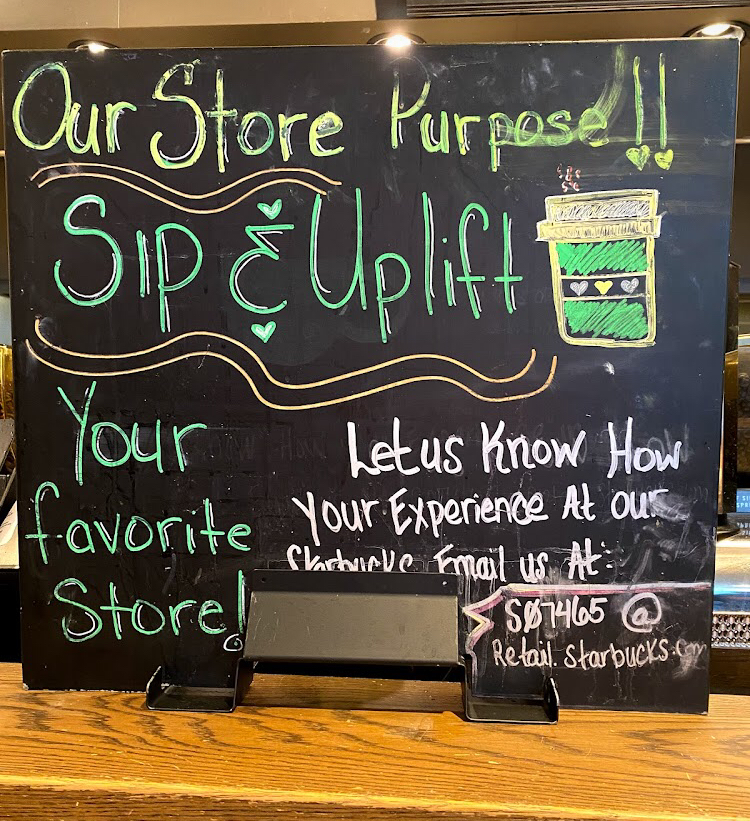 Our Store Purpose!!
Sip & Uplift
Your
favorite
Store!
Let us Know How
Your Experience At our
Starbucks Email us At:
SØ7465 @
Retail.Starbucks.com